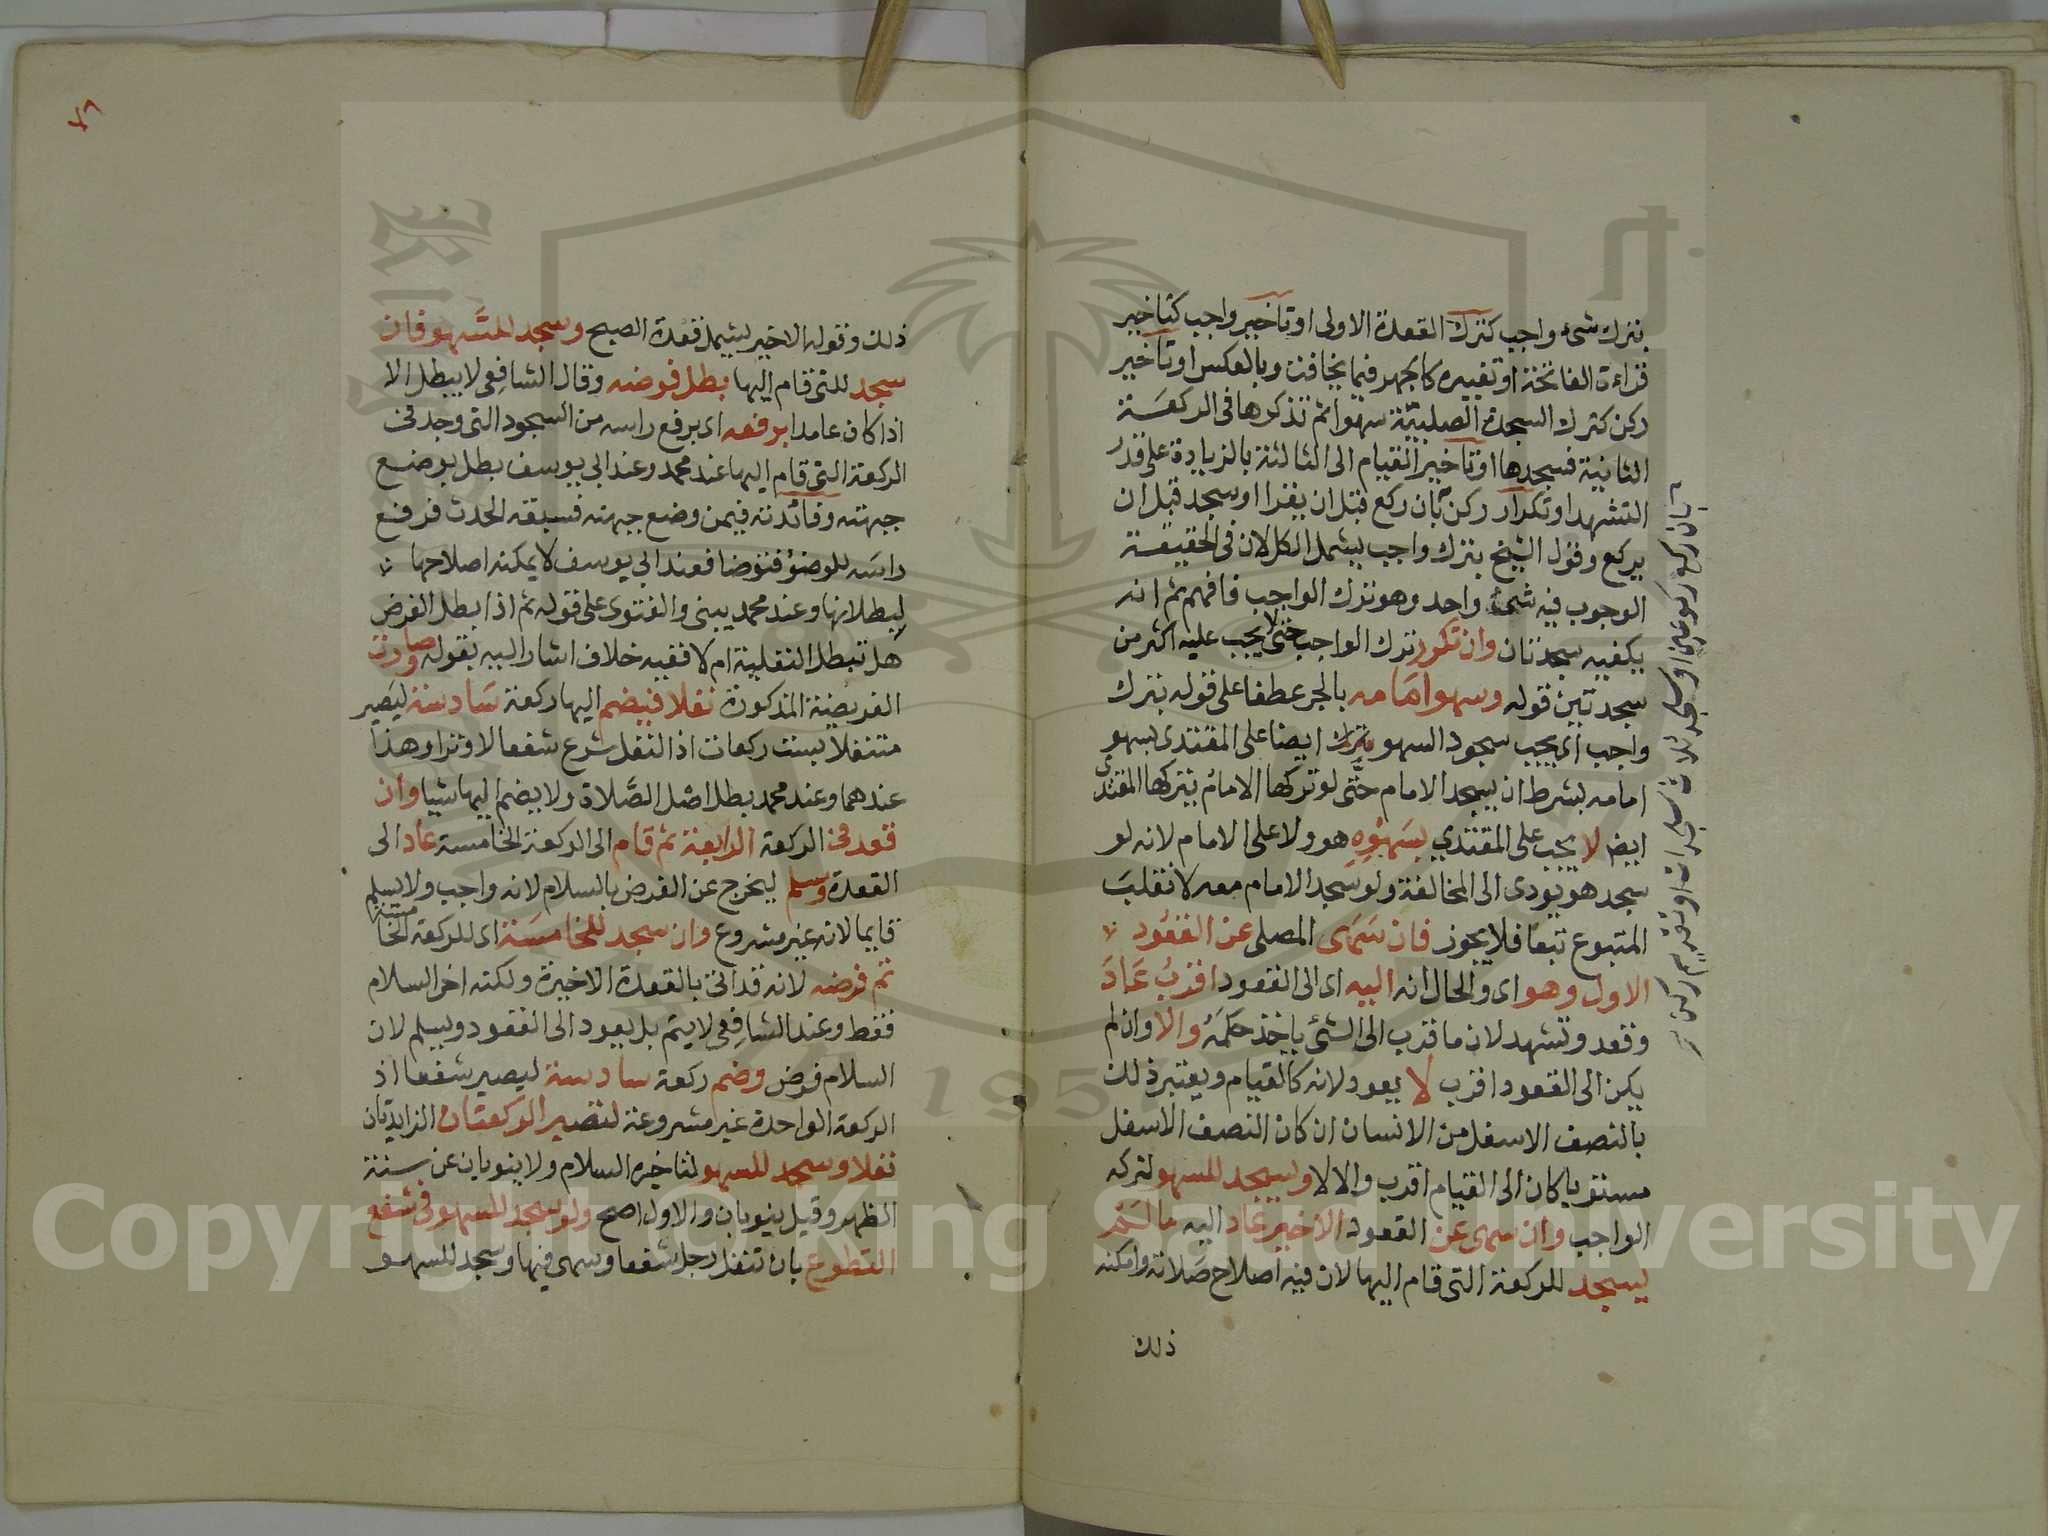 بترك شيء واجب كترك القعدة الاولى او تاخير واجب كتاخير
قراءة الفاتحة او تغييره كالجهر فيما يخافت وبالعكس او تاخير
ركن كترك السجدة الصلبية سهوا ثم تذكرها في الركعة
الثانية فسجدها او تاخير القيام الى الثالثة بالزيادة على قدر
التشهد او تكرار ركن بان ركع قبل ان يقرا او سجد قبل ان
يركع وقول الشيخ بترك واجب يشمل الكل لان في الحقيقة
الوجوب فيه شيء واحد وهو ترك الواجب فافهم ثم انه
يكفيه سجدتان وان تكرر ترك الواجب حتى لا يجب عليه اكثر من
سجدتين قوله وسهو امامه بالجر عطفا على قوله بترك
واجب اى يجب سجود السهو بترك ايضا على المقتدى بسهو
امامه بشرط ان يسجد الامام حتى لو تركها الامام يتركها المقتدى
ايضا لا يجب على المقتدي بسهوه هو ولا على الامام لانه لو
سجد هو يودى الى المخالفة ولو سجد الامام معه لانقلب
المتبوع تبعا فلا يجوز فان سهى المصلى عن القعود
الاول وهو اى والحال انه اليه اى الى القعود اقرب عاد
وقعد وتشهد لان ما قرب الى الشئ ياخذ حكمه والا وان لم
يكن الى القعود اقرب لا يعود لانه كالقيام ويعتبر ذلك
بالنصف الاسفل من الانسان ان كان النصف الاسفل
مستويا كان الى القيام اقرب والا لا ويسجد للسهو لتركه
الواجب وان سهى عن القعود الاخير عاد اليه ما لم
يسجد للركعة التى قام اليها لان فيه اصلاح صلاته وامكنه
ذلك
بان ركع ركوعين او سجد ثلاث سجدات او تقديم ركن
ذلك وقوله الاخير يشمل قعدة الصبح وسجد للسهو فان
سجد للتى قام اليها بطل فرضه وقال الشافعى لا يبطل الا
اذا كان عامدا برفعه اى برفع راسه من السجود التى وجد في
الركعة التى قام اليها عند محمد وعند ابي يوسف بطل بوضع
جبهته وفائدته فيمن وضع جبهته فسبقه الحدث فرفع
راسه للوضؤ فتوضا فعند ابي يوسف لا يمكنه اصلاحها
لبطلانها وعند محمد يبنى والفتوى على قوله ثم اذا بطل الفرض
هل تبطل النقلية ام لا ففيه خلاف اشار اليه بقوله وصارت
الفريضة المذكورة نفلا فيضم اليها ركعة سادسة ليصير
متنفلا بست ركعات اذ النفل شرع شفعا لا وترا وهذا
عندهما وعند محمد بطل اصل الصلاة ولا يضم اليها شيا وان
قعد في الركعة الرابعة ثم قام الى الركعة الخامسة عاد الى
القعدة وسلم ليخرج عن الفرض بالسلام لانه واجب ولا يسلم
قايما لانه غير مشروع وان سجد للخامسة اى للركعة الخامسة
تم فرضه لانه قد اتى بالقعدة الاخيرة ولكنه اخر السلام
فقط وعند الشافعى لا يتم بل يعود الى القعود ويسلم لان
السلام فرض وضم ركعة سادسة ليصير شفعا اذ
الركعة الواحدة غير مشروعة لتصير الركعتان الزايدتان
نفلا وسجد للسهو لتاخيره السلام ولا ينوبان عن سنة
الظهر وقيل ينوبان والاول اصح ولو سجد للسهو فى شفع
التطوع بان تنفل رجل شفعا وسهى فيها وسجد للسهو